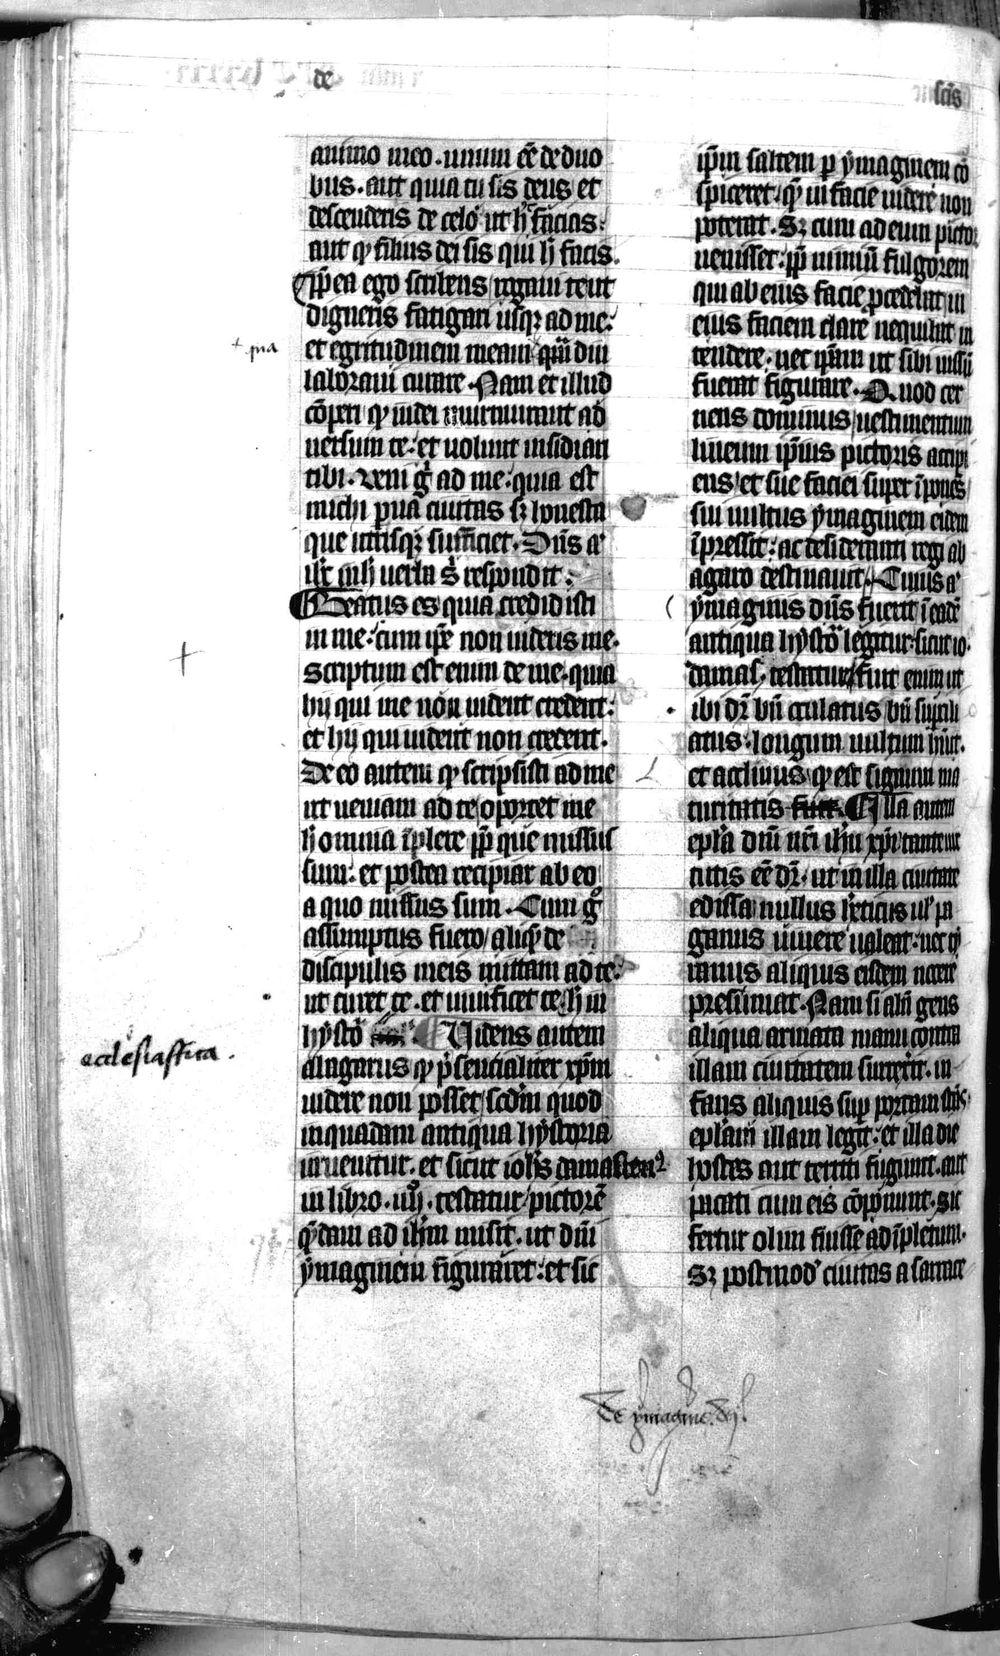 de
scīs
animo meo · unum eē de duo
bus · aut quia tu sis deus et
descenderis de celo ut h̄ facias ·
aut qꝫ filius dei sis qui h̄ facis ·
ꝓp̄ ea ego scribens rogam te ut
digneris fatigari usqꝫ ad me ·
+ pna
et egritudinem meam qua diu
laboraui curare · Nam et illud
cōperi qꝫ iudei murmurant ad
uersum te · et uolunt insidiari
tibi · Veni gͦ ad me · quia est
michi parua ciuitas sꝫ honesta
que utrisqꝫ sufficiet · Dn̄s aͧ
ih̄c in h̄ uerba s̄ respondit ·
Beatus es quia credidisti
in me · cum ip̄e non uideris me ·
scriptum est enim de me · quia
hij qui me non uident credent ·
et hij qui uident non credent ·
De eo autem qꝫ scripsisti ad me
ut ueniam ad te oportet me
h̄ omnia īplere ꝓp̄ que missus
sum · et postea recipiar ab eo
a quo missus sum · Cum gͦ
assumptus fuero / aliqꝫ de
discipulis meis mittam ad te ·
ut curet te · et uiuificet te · h̄ in
hystoͬ Videns autem
ecclesiastica .
abagarus qꝫ p̄sentialiter xp̄m
uidere non posset / scdm̄ quod
in quadam antiqua hystoria
inuenitur · et sicut ioh̄s damascenꝰ
in libro · iiij · testatur / pictorē
qͣdam ad ih̄m misit · ut dn̄i
ymaginem figuraret · et sic
ip̄m saltem ꝑ ymaginem cō
spiceret · qͣ in facie uidere non
poterat · Sꝫ cum ad eum pictor
uenisset · ꝓp̄ nimiū fulgorem
qui ab eius facie ꝓcedebat in
eius faciem clare nequibat in
tendere · nec ip̄am ut sibi iussū
fuerat figurare · Quod cer
nens dominus / uestimentum
lineum ip̄ius pictoris accipi
ens / et sue faciei super īponēs
sui uultus ymaginem eidem
īpressit · ac desideranti regi ab
agaro destinauit · Cuius aͧ
ymaginis dn̄s fuerit ī eadē
antiqua hystoͬ legitur · sicut io ·
damas · testatur / fuit enim ut
ibi dr̄ bn̄ oculatus bn̄ supcili
atus · longum uultum hn̄it ·
et accliuus · qꝫ est signum ma
turitatis Illa autem
epl̄a dn̄i nr̄i ih̄u xp̄i tante uir
tutis eē dr̄ · ut in illa ciuitate
edissa nullus h̄reticus ul̓ pa
ganus uiuere ualeat · nec ty
rannus aliquis eisdem nocere
presumat · Nam si alin̄ gens
aliqua armata manu contra
illam ciuitatem surrexit · in
fans aliquis sup portam stās
epl̄am illam legit · et illa die
hostes aut territi fugiunt · aut
pacati cum eis cōponunt · sic
fertur olim fuisse adīpletum ·
Sꝫ postmodͦ ciuitas a sarrace
De ymagine